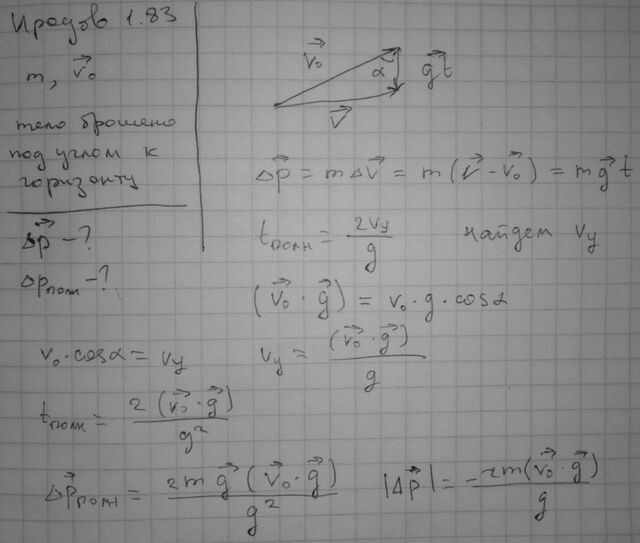 Иродов 1.83
m, v⃗₀
тело брошено
под углом к
горизонту
Δp⃗ – ?
Δpполн – ?
v⃗₀ α g⃗t
v⃗
Δp⃗ = mΔv⃗ = m(v⃗ - v⃗₀) = mg⃗t
tполн = 2vy/g найдем vy
(v⃗₀ · g⃗) = v₀ · g · cosα
v₀ · cosα = vy vy = (v⃗₀ · g⃗)/g
tполн = 2(v⃗₀ · g⃗)/g²
Δp⃗полн = 2mg⃗(v⃗₀ · g⃗)/g² |Δp⃗| = -2m(v⃗₀ · g⃗)/g